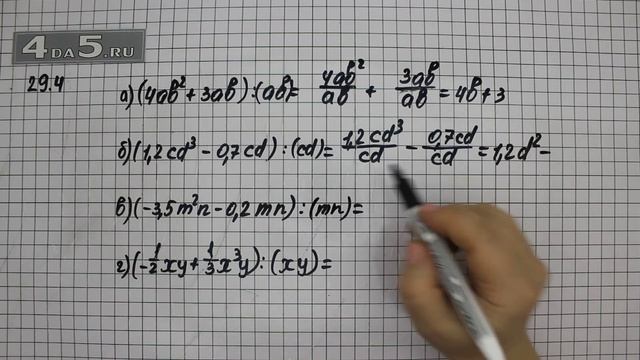 4DA5.RU
29.4
а) (4ab² + 3ab) : (ab) = 4ab²/ab + 3ab/ab = 4b + 3
б) (1,2cd³ - 0,7cd) : (cd) = 1,2cd³/cd - 0,7cd/cd = 1,2d² -
в) (-3,5m²n - 0,2mn) : (mn) =
г) (-1/2xy + 1/3x³y) : (xy) =